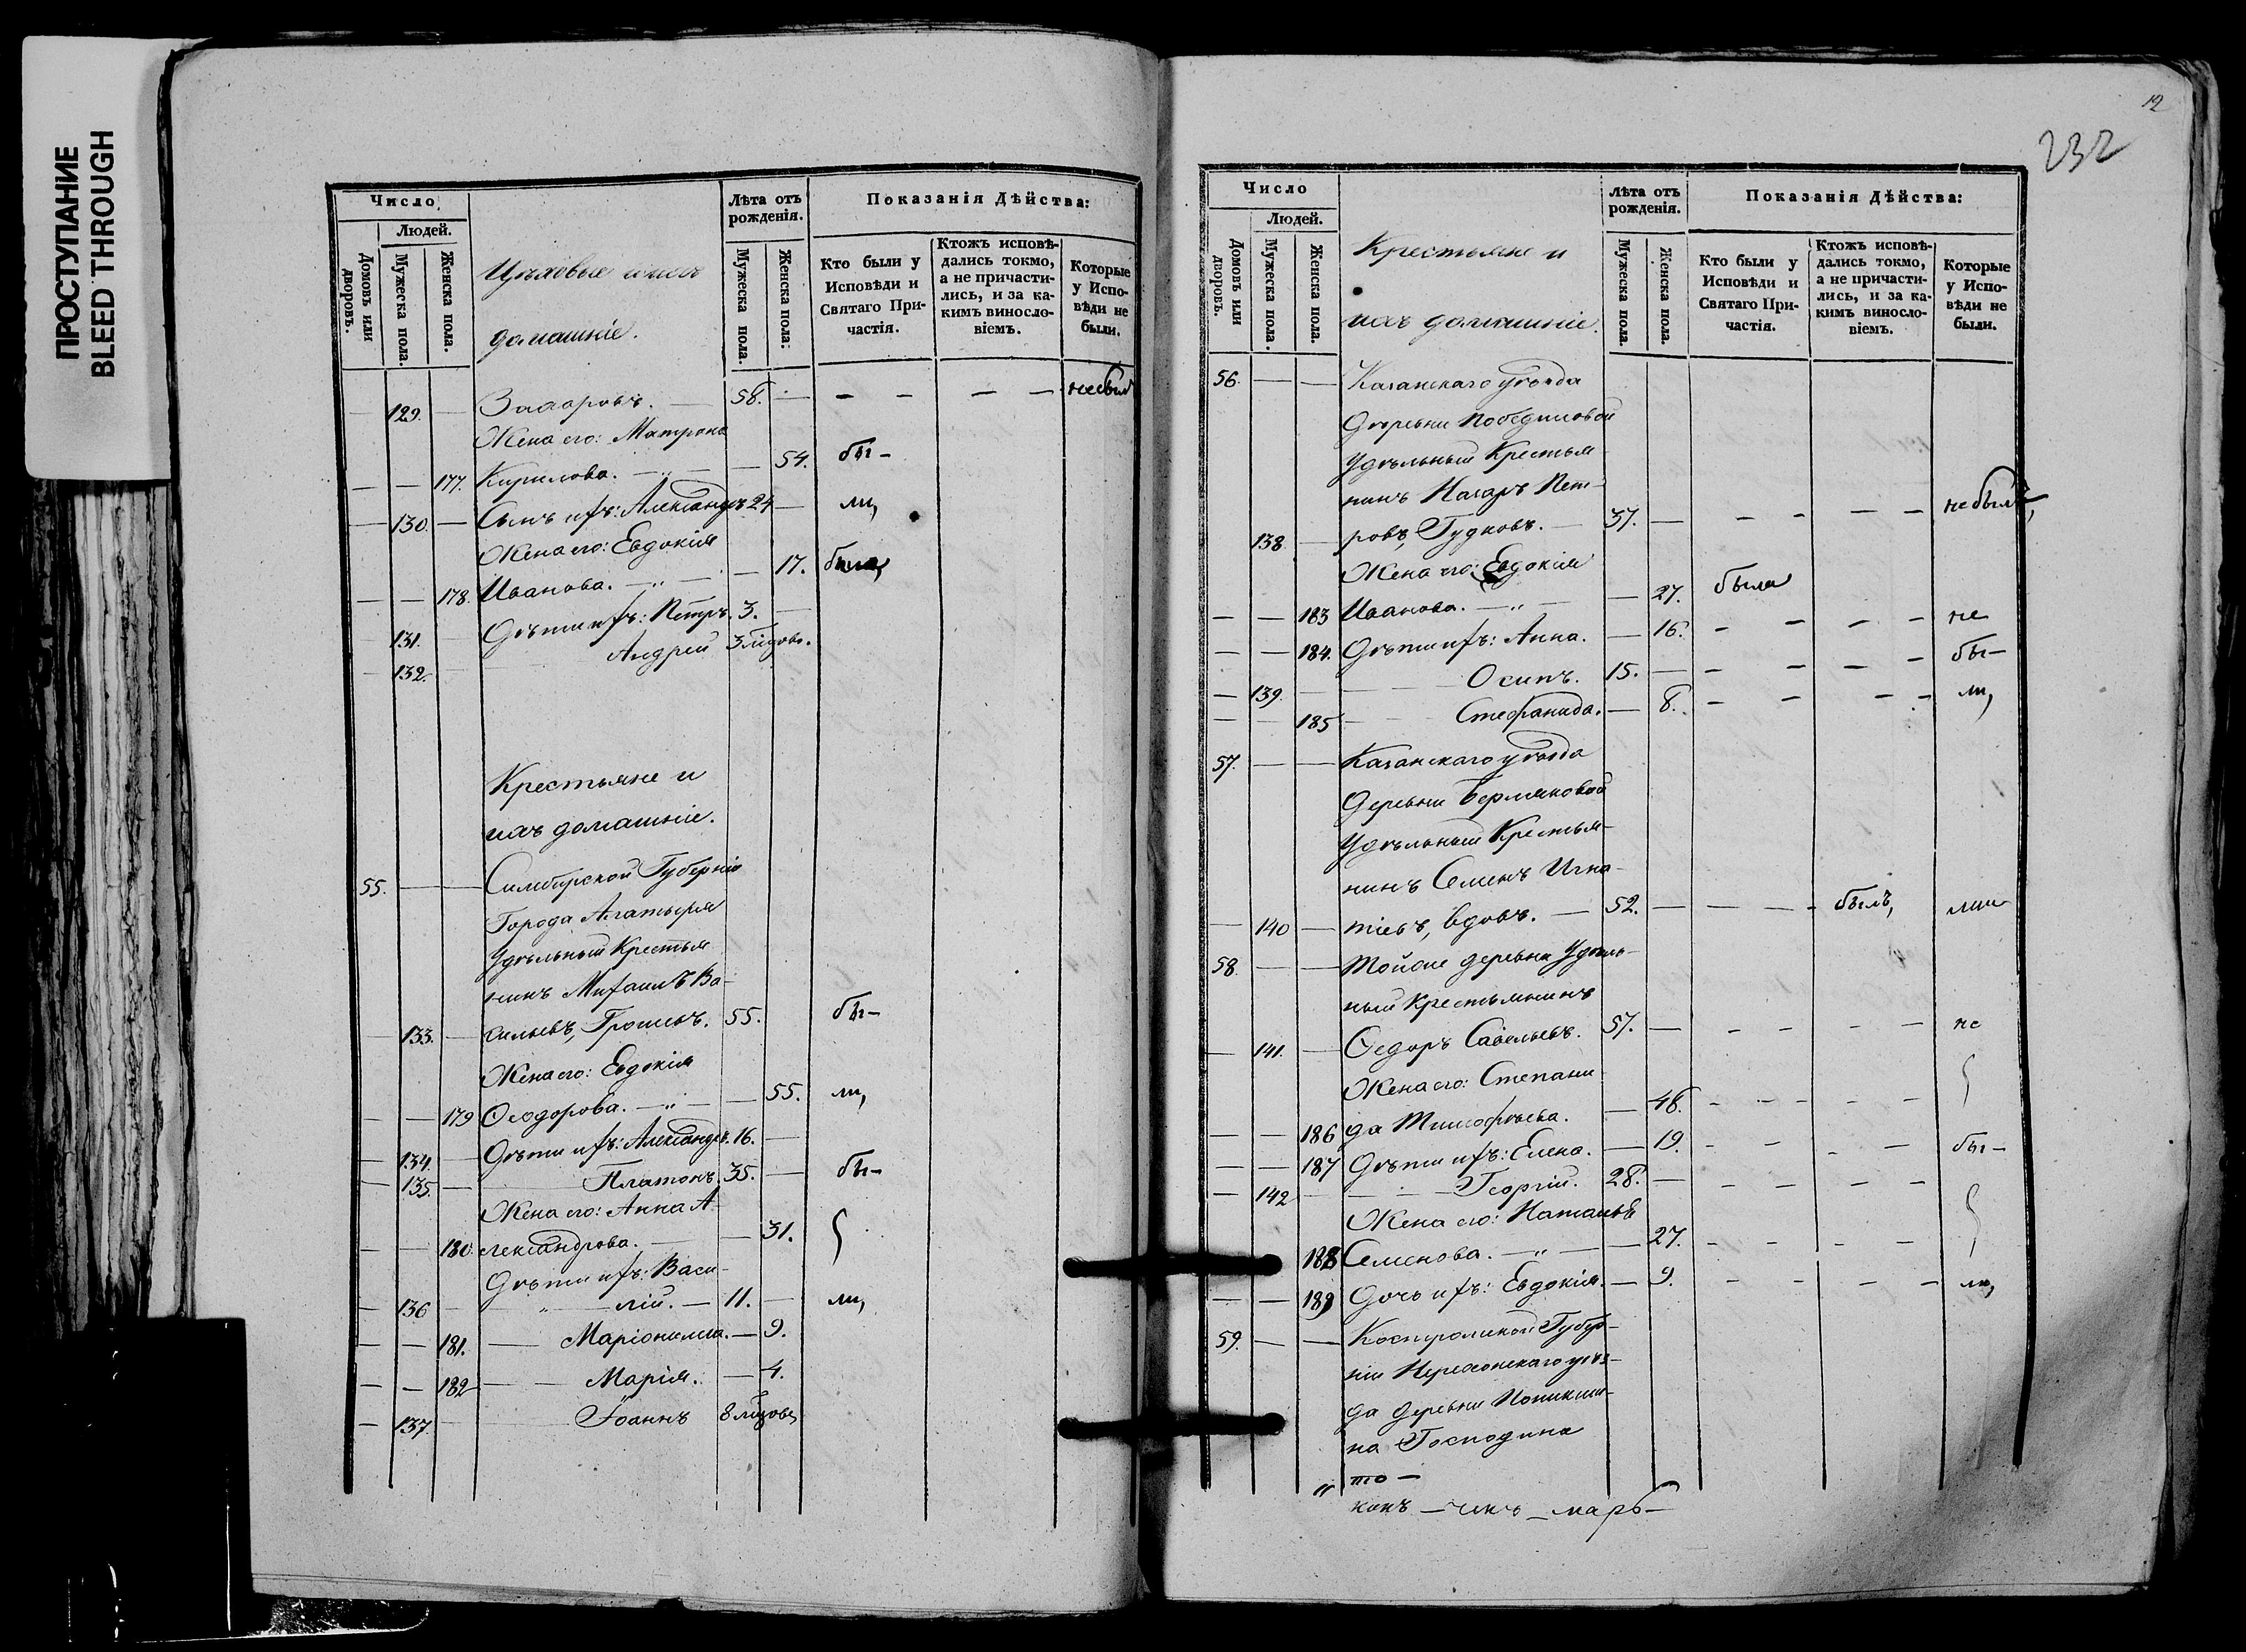 ПРОСТУПАНИЕ
BLEED THROUGH
Число
Людей.
Домовъ или дворовъ.
Мужеска пола.
Женска пола.
Цѣховые и ихъ
домашніе.
Лѣта отъ рожденія.
Мужеска пола.
Женска пола.
Показанія Дѣйства:
Кто были у Исповѣди и Святаго Причастія.
Ктожъ исповѣдались токмо, а не причастились, и за какимъ винословіемъ.
Которые у Исповѣди не были.
129. Захаровъ. 58. — — — — небылъ
Жена его: Матрона
177. Кирилова. — 54. бы-
130. Сынъ ихъ: Александръ 24 — ли,
Жена его: Евдокія
178. Иванова. — 17. была,
131. Дѣти ихъ: Петръ. 3.
132. Андрей
Крестьяне и
ихъ домашніе.
55. Симбирской Губерніи
Города Алатыря
Удѣльный Крестья-
нинъ Михаилъ Ва-
133. сильевъ, 55. бы-
Жена его: Евдокія
179 Ѳеодорова. — 55. ли,
134. Дѣти ихъ: Александръ. 16.
135. Платонъ. 35. бы-
Жена его: Анна А-
180. лександрова. — 31.
Дѣти ихъ: Васи-
136 лій. — 11. ли,
181. — 9.
182 Марія. — 4.
137. Іоаннъ
12
232
Число
Людей.
Домовъ или дворовъ.
Мужеска пола.
Женска пола.
Крестьяне и
ихъ домашніе.
Лѣта отъ рожденія.
Мужеска пола.
Женска пола.
Показанія Дѣйства:
Кто были у Исповѣди и Святаго Причастія.
Ктожъ исповѣдались токмо, а не причастились, и за какимъ винословіемъ.
Которые у Исповѣди не были.
56. Казанскаго уѣзда
Деревни Победиловой
Удѣльный Крестья-
нинъ Назаръ Пет-
138. ровъ, Гудковъ. 37. — — — — небылъ,
Жена его: Евдокія
183 Иванова. — 27. была
184. Дѣти ихъ: Анна. — 16. — — — — не
139. Осипъ. 15. — — — — бы-
185 Стефанида. — 8. — — — — ли,
57. Казанскаго уѣзда
Деревни
Удѣльный Крестья-
нинъ Семенъ Игна-
140 тіевъ, вдовъ. — 52. — — — былъ,
58. Тойже деревни Удѣль-
ный Крестьянинъ
141. Ѳедоръ Савельевъ. 57. — — — — не
Жена его: Степани-
186 да Тимофѣева. — 48.
187 Дѣти ихъ: Елена. — 19. — — — бы-
142 Георгій. 28.
Жена его: Наталья
188 Семенова. — 27.
189 Дочь ихъ: Евдокія. — 9. — — — — ли,
59. Костромской Губер-
ніи Нерехонскаго уѣз-
да деревни
на Господина